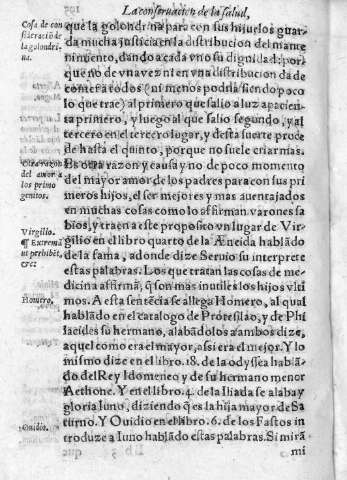 La conseruacion de la salud,
Cosa de con
sideració de
la golondri
na.
que la golondrina para con sus hijuelos guar
da mucha justicia en la distribucion del mante
nimiento, dando a cada vno su dignidad: por
que no de vna vez ni en vna distribucion da de
comer a todos (ni menos podria siendo poco
lo que trae) al primero que salio a luz apacien
ta primero, y luego al que salio segundo, y al
tercero en el tercero lugar, y desta suerte proce
de hasta el quinto, porque no suele criar mas.
Otra razon
del amor a
los primo
genitos.
Es otra razon y causa y no de poco momento
del mayor amor de los padres para con sus pri
meros hijos, el ser mejores y mas auentajados
en muchas cosas como lo afirman varones sa
bios, y traen a este proposito vn lugar de Vir-
Virgilio.
¶ Extremã
ut perhibẽt,
gilio en el libro quarto de la Æneida hablãdo
de la fama, adonde dize Seruio su interprete
estas palabras. Los que tratan las cosas de me-
dicina affirmã, q̃ son mas inutiles los hijos vlti
Homero.
mos. A esta sentẽcia se allega Homero, al qual
hablãdo en el catalogo de Protesilao, y de Phi
lacides su hermano, alabãdolos a ambos dize,
aquel como era el mayor, assi era el mejor. Y lo
mismo dize en el libro. 18. de la odyssea hablã-
do del Rey Idomeneo y de su hermano menor
Aethone. Y en el libro. 4. de la Iliada se alaba y
gloria Iuno, diziendo q̃ es la hija mayor de Sa
Ouidio.
turno. Y Ouidio en el libro. 6. de los Fastos in
troduze a Iuno hablãdo estas palabras. Si mirã
mi